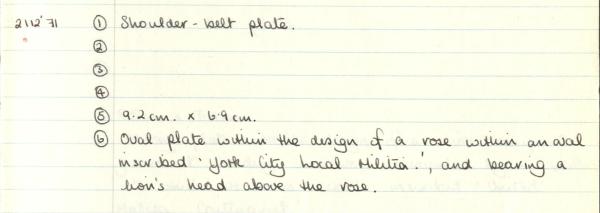 2112'71 ① Shoulder-belt plate.
②
③
④
⑤ 9.2cm. x 6.9cm.
⑥ Oval plate within the design of a rose within an oval
inscribed 'York City Local Militia.', and bearing a
lion's head above the rose.